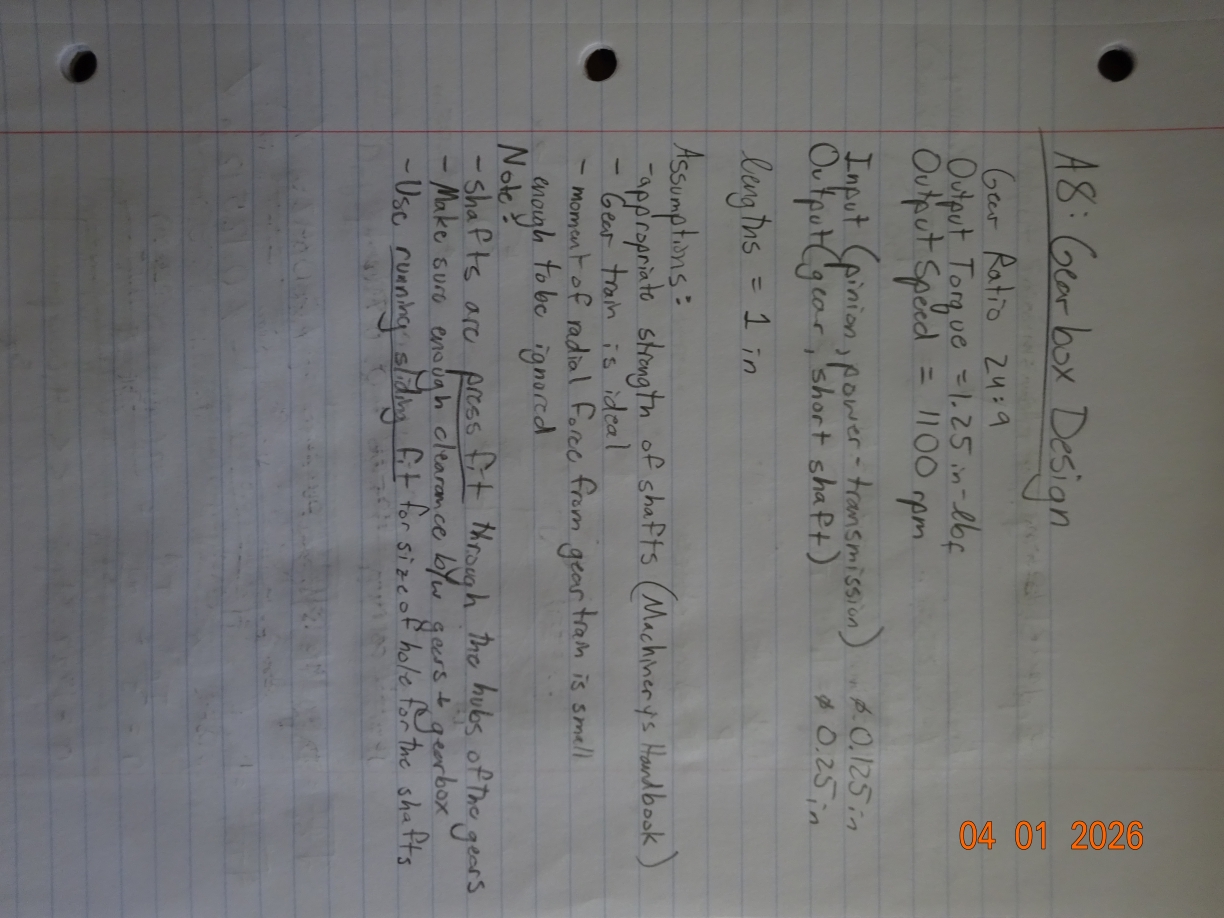 A8: Gearbox Design
Gear Ratio 24:9
Output Torque = 1.25 in-lbf
Output Speed = 1100 rpm
Input (pinion, power-transmission) ø 0.125 in
Output (gear, short shaft) ø 0.25 in
lengths = 1 in
Assumptions:
- appropriate strength of shafts (Machinery's Handbook)
- Gear train is ideal
- moment of radial force from gear train is small
enough to be ignored
Note:
- shafts are press fit through the hubs of the gears
- Make sure enough clearance b/w gears + gearbox
- Use running sliding fit for size of hole for the shafts
04 01 2026